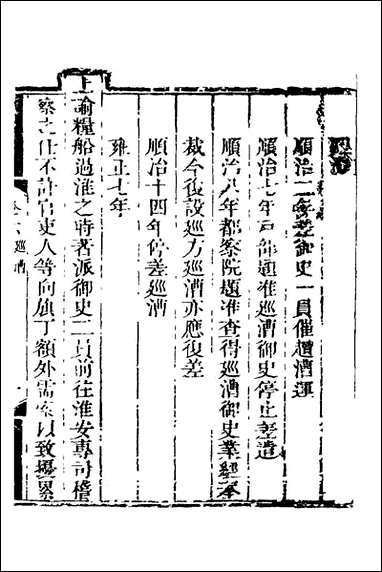 巡漕
順治二年差御史一員催趲漕運
順治七年戶部題准巡漕御史停止差遣
順治八年都察院題准查得巡漕御史業經奉
裁今復設巡方巡漕亦應復差
順治十四年停差巡漕
雍正七年
上諭糧船過淮之時著派御史二員前往淮安專司稽
察之任不許官吏人等向旗丁額外需索以致擾累
巡漕